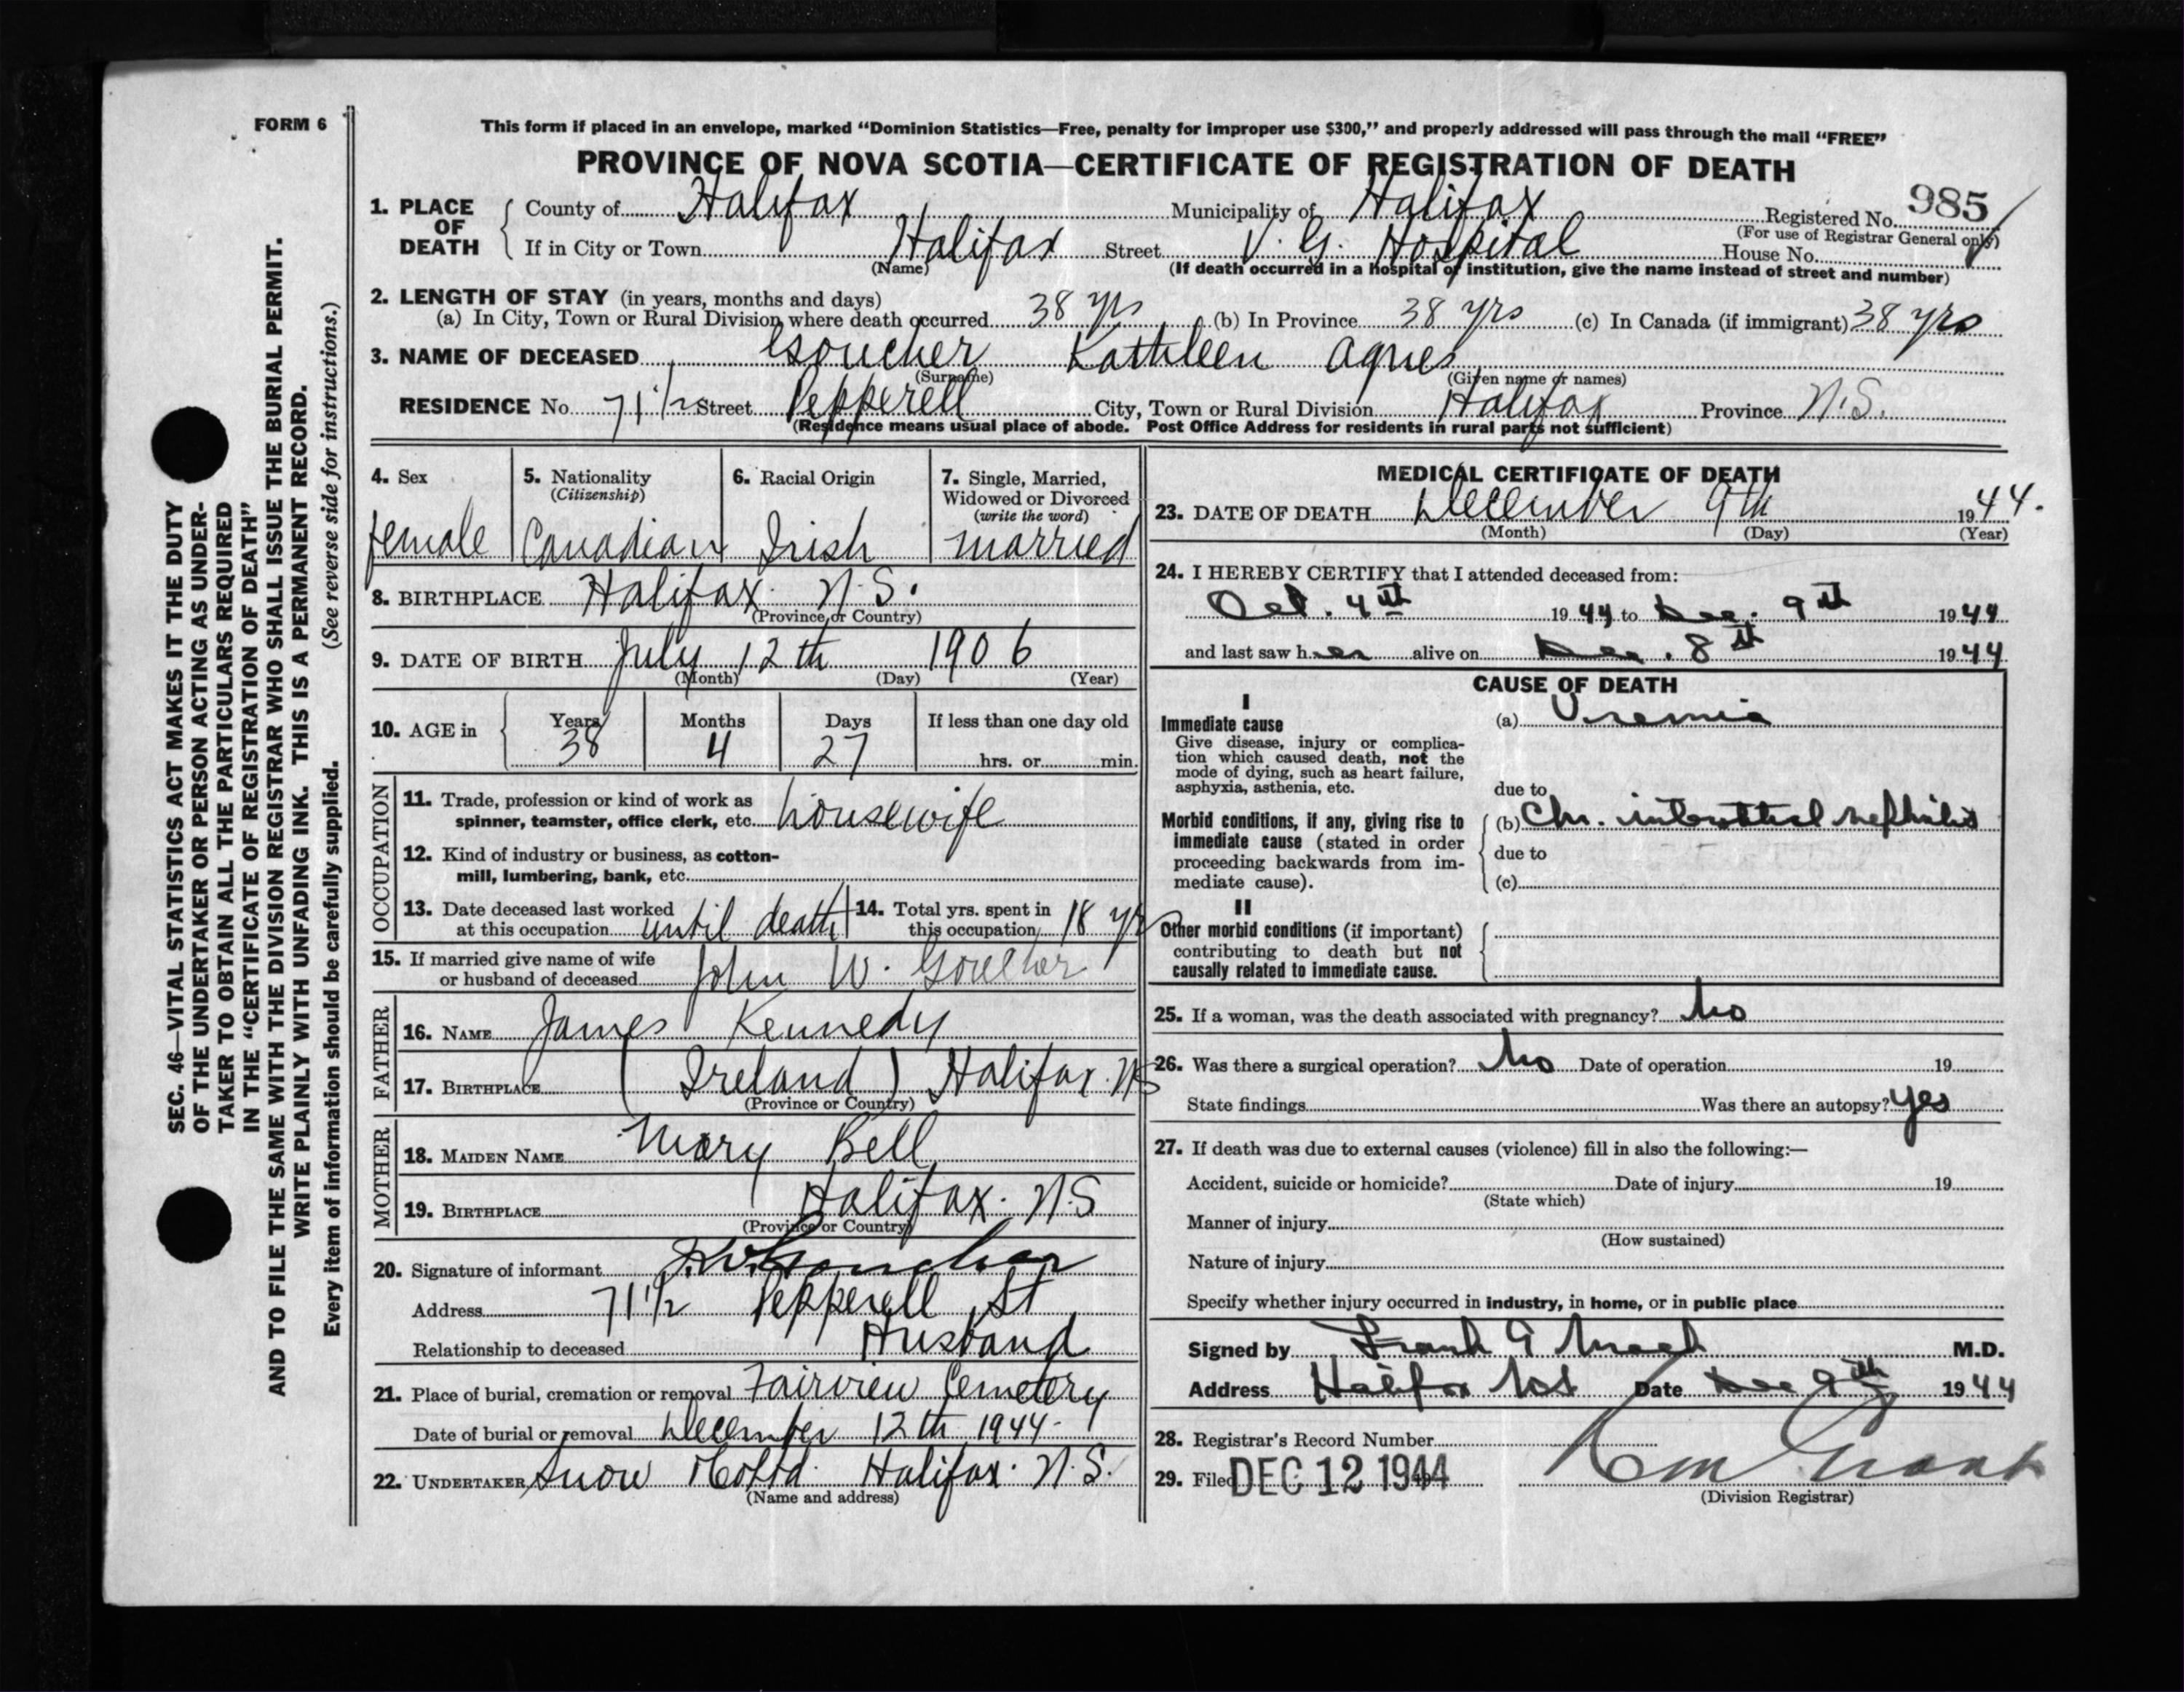 FORM 6
This form if placed in an envelope, marked “Dominion Statistics—Free, penalty for improper use $300,” and properly addressed will pass through the mail “FREE”
PROVINCE OF NOVA SCOTIA—CERTIFICATE OF REGISTRATION OF DEATH
1. PLACE OF DEATH County of Halifax Municipality of Halifax Registered No. 985
(For use of Registrar General only)
If in City or Town Halifax Street V. G. Hospital House No.
(Name) (If death occurred in a hospital or institution, give the name instead of street and number)
2. LENGTH OF STAY (in years, months and days)
(a) In City, Town or Rural Division where death occurred 38 yrs (b) In Province 38 yrs (c) In Canada (if immigrant) 38 yrs
3. NAME OF DECEASED Goucher Kathleen Agnes
(Surname) (Given name or names)
RESIDENCE No. 71 1/2 Street Pepperell City, Town or Rural Division Halifax Province N.S.
(Residence means usual place of abode. Post Office Address for residents in rural parts not sufficient)
4. Sex female
5. Nationality (Citizenship) Canadian
6. Racial Origin Irish
7. Single, Married, Widowed or Divorced (write the word) married
8. BIRTHPLACE Halifax N.S.
(Province or Country)
9. DATE OF BIRTH July 12th 1906
(Month) (Day) (Year)
10. AGE in Years 38 Months 4 Days 27 If less than one day old
hrs. or min.
OCCUPATION
11. Trade, profession or kind of work as
spinner, teamster, office clerk, etc. housewife
12. Kind of industry or business, as cotton-
mill, lumbering, bank, etc.
13. Date deceased last worked
at this occupation until death
14. Total yrs. spent in
this occupation 18 yrs
15. If married give name of wife
or husband of deceased John W. Goucher
FATHER
16. NAME James Kennedy
17. BIRTHPLACE (Ireland) Halifax. NS
(Province or Country)
MOTHER
18. MAIDEN NAME Mary Bell
19. BIRTHPLACE Halifax. N.S
(Province or Country)
20. Signature of informant J.W. Goucher
Address 71 1/2 Pepperell St
Relationship to deceased Husband
21. Place of burial, cremation or removal Fairview Cemetery
Date of burial or removal December 12th 1944.
22. UNDERTAKER Snow & Co Ltd. Halifax. N.S.
(Name and address)
MEDICAL CERTIFICATE OF DEATH
23. DATE OF DEATH December 9th 1944.
(Month) (Day) (Year)
24. I HEREBY CERTIFY that I attended deceased from:
Oct. 4th 1944 to Dec. 9th 1944
and last saw her alive on Dec. 8th 1944
CAUSE OF DEATH
I
Immediate cause
Give disease, injury or complica-
tion which caused death, not the
mode of dying, such as heart failure,
asphyxia, asthenia, etc.
(a) Uremia
due to
Morbid conditions, if any, giving rise to
immediate cause (stated in order
proceeding backwards from im-
mediate cause).
(b) Chr. interstitial nephritis
due to
(c)
II
Other morbid conditions (if important)
contributing to death but not
causally related to immediate cause.
25. If a woman, was the death associated with pregnancy? No
26. Was there a surgical operation? No Date of operation 19
State findings Was there an autopsy? Yes
27. If death was due to external causes (violence) fill in also the following:—
Accident, suicide or homicide? Date of injury 19
(State which)
Manner of injury
(How sustained)
Nature of injury
Specify whether injury occurred in industry, in home, or in public place
Signed by Frank G Mack M.D.
Address Halifax NS Date Dec 9th 1944
28. Registrar's Record Number
29. Filed DEC 12 1944
(Division Registrar)
SEC. 46—VITAL STATISTICS ACT MAKES IT THE DUTY
OF THE UNDERTAKER OR PERSON ACTING AS UNDER-
TAKER TO OBTAIN ALL THE PARTICULARS REQUIRED
IN THE “CERTIFICATE OF REGISTRATION OF DEATH”
AND TO FILE THE SAME WITH THE DIVISION REGISTRAR WHO SHALL ISSUE THE BURIAL PERMIT.
WRITE PLAINLY WITH UNFADING INK. THIS IS A PERMANENT RECORD.
Every item of information should be carefully supplied. (See reverse side for instructions.)